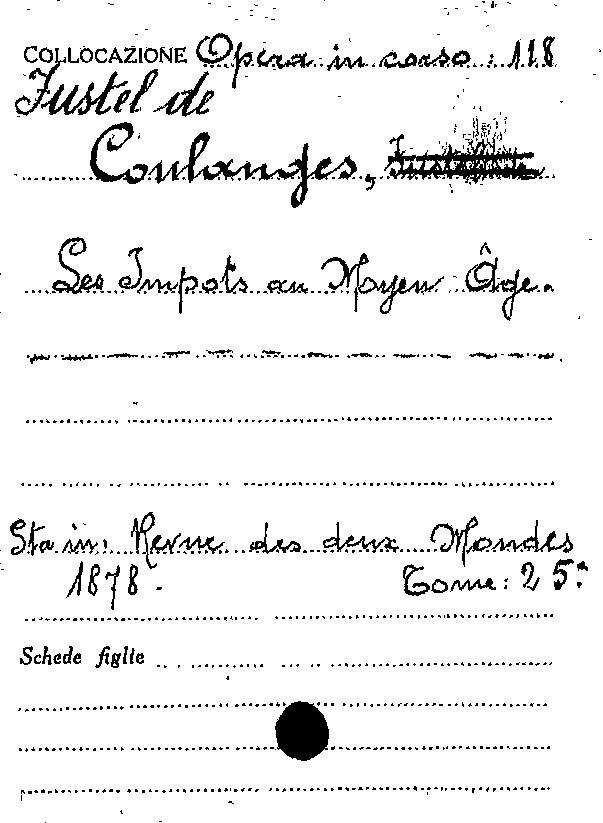 COLLOCAZIONE Opera in corso: 118
Fustel de
Coulanges,
Les Impots au Moyen Âge.
Sta in: Revue des deux Mondes
1878. Tome: 25.
Schede figlie